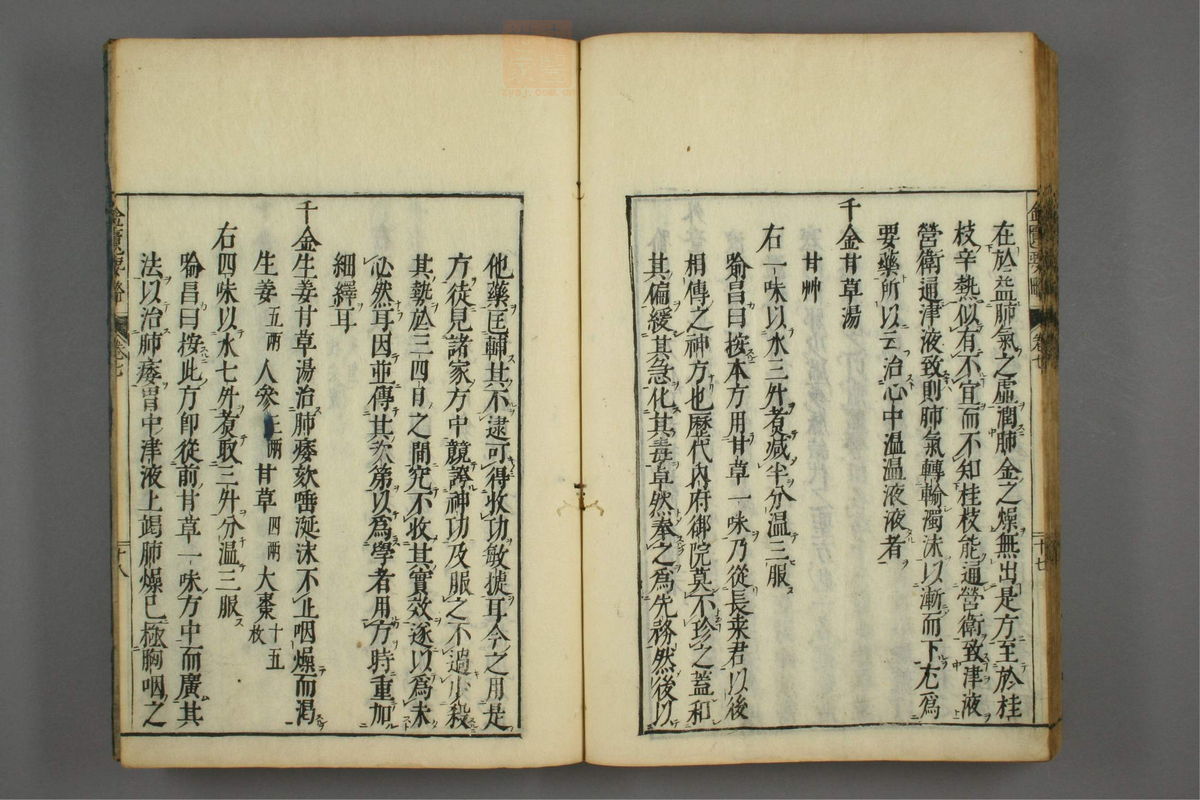 在於益肺氣之虛潤肺金之燥無出是方至於桂
枝辛熱似有不宜而不知桂枝能通營衛致津液
營衛通津液致則肺氣轉輸濁沫以漸而下尤爲
要藥所以云治心中温温液液者
千金甘草湯
甘艸
右一味以水三升煮减半分温三服
喻昌曰按本方用甘草一味乃從長桒君以後
相傳之神方也歷代內府御院莫不珍之蓋和
其偏緩其急化其毒卓然奉之爲先務然後以
他藥匡輔其不逮可得收功敏捷耳今之用是
方徒見諸家方中競誇神功及服之不過少殺
其勢於三四日之間究不收其實效遂以爲未
必然耳因並傳其次第以爲學者用方時重加
細繹耳
千金生姜甘草湯治肺痿欬唾涎沫不止咽燥而渴
生姜五兩 人參三兩 甘草四兩 大棗十五枚
右四味以水七升煮取三升分温三服
喻昌曰按此方卽從前甘草一味方中而廣其
法以治肺痿胃中津液上竭肺燥已極胸咽之
卷七
十七
十八